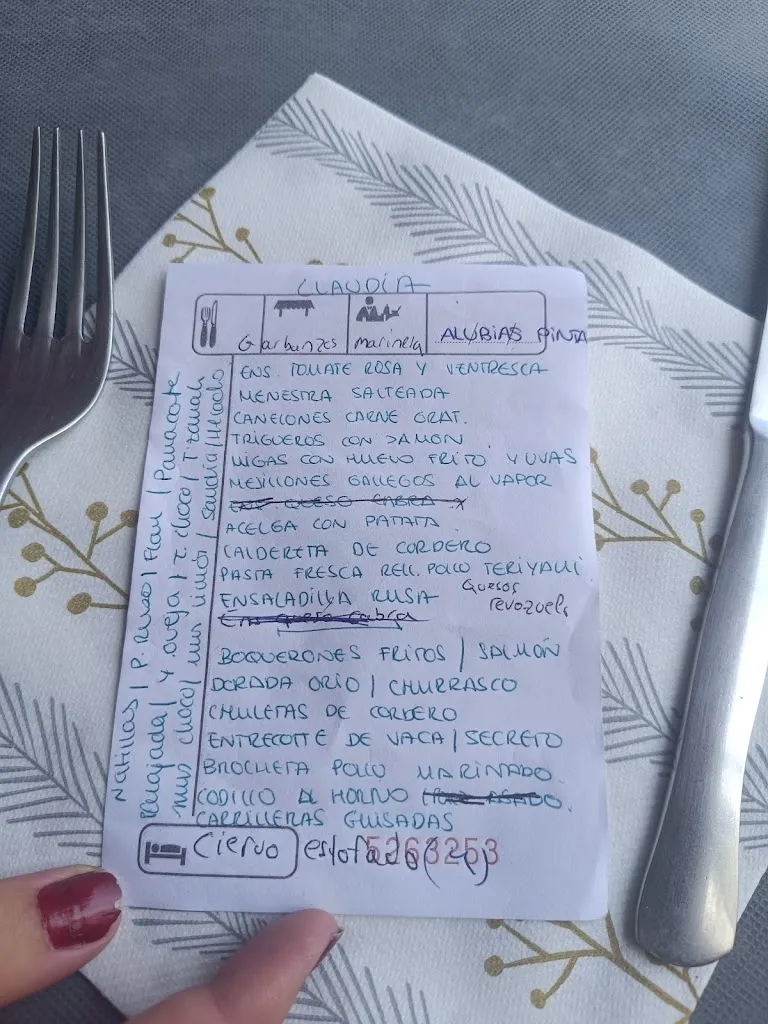 CLAUDIA
Garbanzos marinela ALUBIAS PINTA
ENS. TOMATE ROSA Y VENTRESCA
MENESTRA SALTEADA
CANELONES CARNE GRAT.
TRIGUEROS CON JAMON
MIGAS CON HUEVO FRITO Y UVAS
MEJILLONES GALLEGOS AL VAPOR
ENS. QUESO CABRA
ACELGA CON PATATA
CALDERETA DE CORDERO
PASTA FRESCA RELL. POLLO TERIYAKI
ENSALADILLA RUSA
Quesos
revozuelo
Ens queso cabra
BOQUERONES FRITOS / SALMÓN
DORADA ORIO / CHURRASCO
CHULETAS DE CORDERO
ENTRECOTTE DE VACA / SECRETO
BROCHETA POLLO MARINADO.
CODILLO AL HORNO
CARRILLERAS GUISADAS
Ciervo estofado
5263253
Natillas / P. Ruso / Flan / Panacote
y oveja / T. choco / Tiramisú
mus choco / mus limón / sandía / Helado